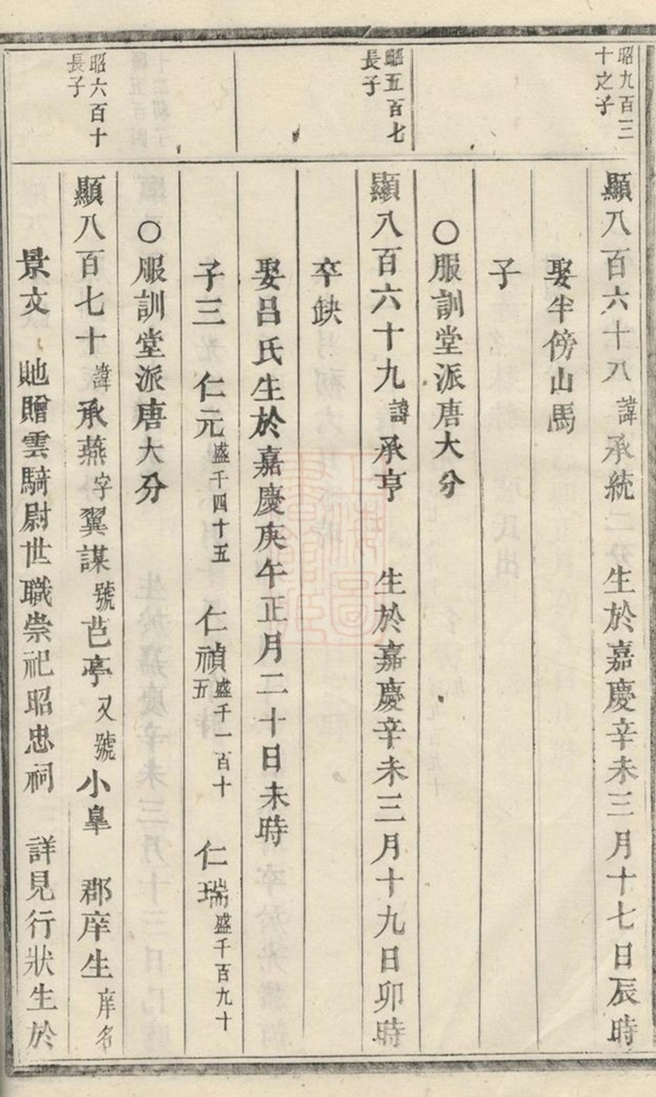 昭九百三
十之子
顯八百六十八 諱承統 生於嘉慶辛未三月十七日辰時
娶半傍山馬
子
○服訓堂派唐大分
昭五百七
長子
顯八百六十九 諱承亨 生於嘉慶辛未三月十九日卯時
卒缺
娶呂氏生於嘉慶庚午正月二十日未時
子三 仁元盛千四十五 仁禎盛千一百十五 仁瑞盛千百九十
○服訓堂派唐大分
昭六百十
長子
顯八百七十諱承燕字翼謀號芑亭又號小皐 郡庠生庠名
景文 貤贈雲騎尉世職崇祀昭忠祠 詳見行狀生於